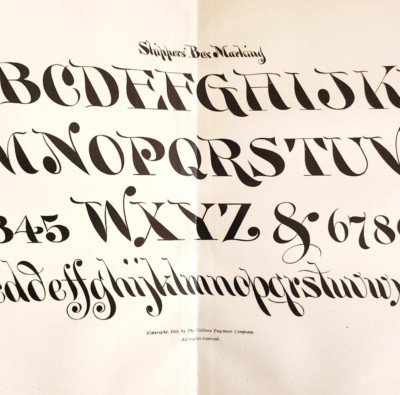 Shippers' Box Marking
BCDEFGHIJK
MNOPQRSTUV
345 WXYZ & 678
ddeffghijklmnopqrstuvw
Copyright, by The Colliery Engineer Company.
All rights reserved.